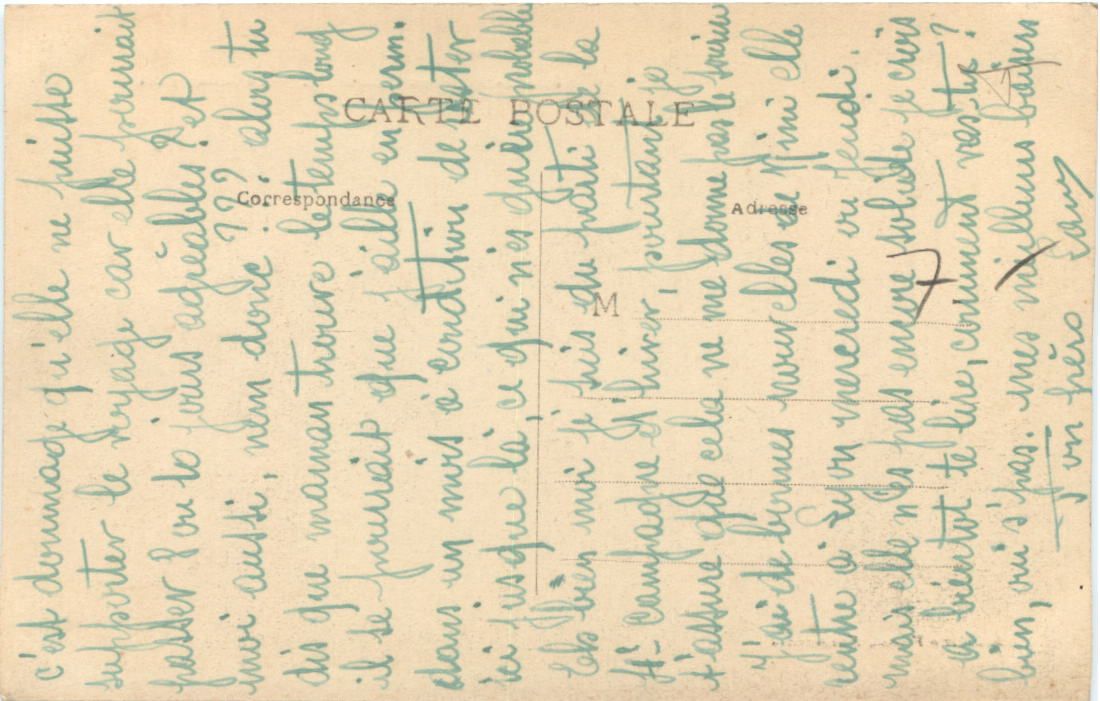 CARTE POSTALE
Correspondance
Adresse
M
c'est dommage qu'elle ne puisse
supporter le voyage car elle pourrait
passer 8 ou 10 jours agréables et
moi aussi, donc ??? alors tu
dis que maman trouve le temps long
il se pourrait que j'aille en perm.
dans un mois à condition de rester
ici jusque là, ce qui n'est guère probable
Eh bien moi je suis du parti de la
campagne d'hiver - pourtant je
t'assure que cela ne me donne pas le
j'ai de bonnes nouvelles de Mimi elle
rentre à Lyon mercredi ou jeudi.
mais elle n'est pas encore solide je crois
à bientôt te lire, comment vas tu?
bien, oui n'pas. mes meilleurs baisers
Ton frère
7